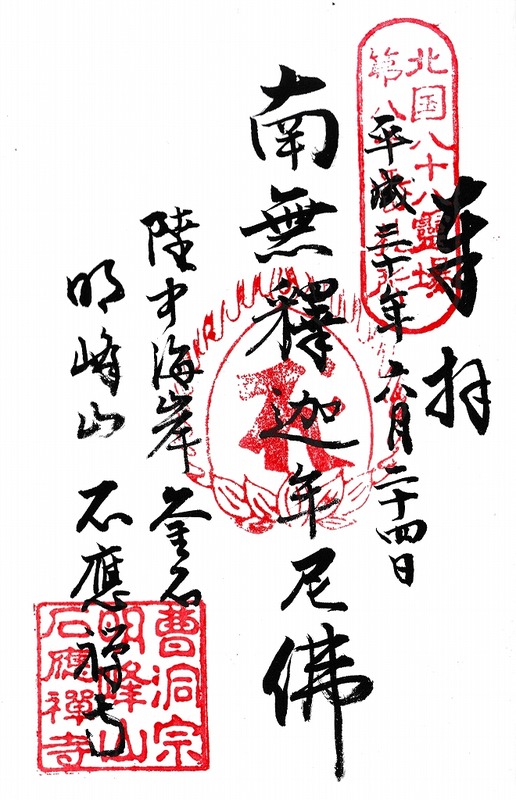 奉拝
平成三十年六月二十四日
南無釋迦牟尼佛
陸中海岸 釜石
明峰山 石應禅寺
北国八十八霊場
第八
曹洞宗
明峰山
石應禪寺